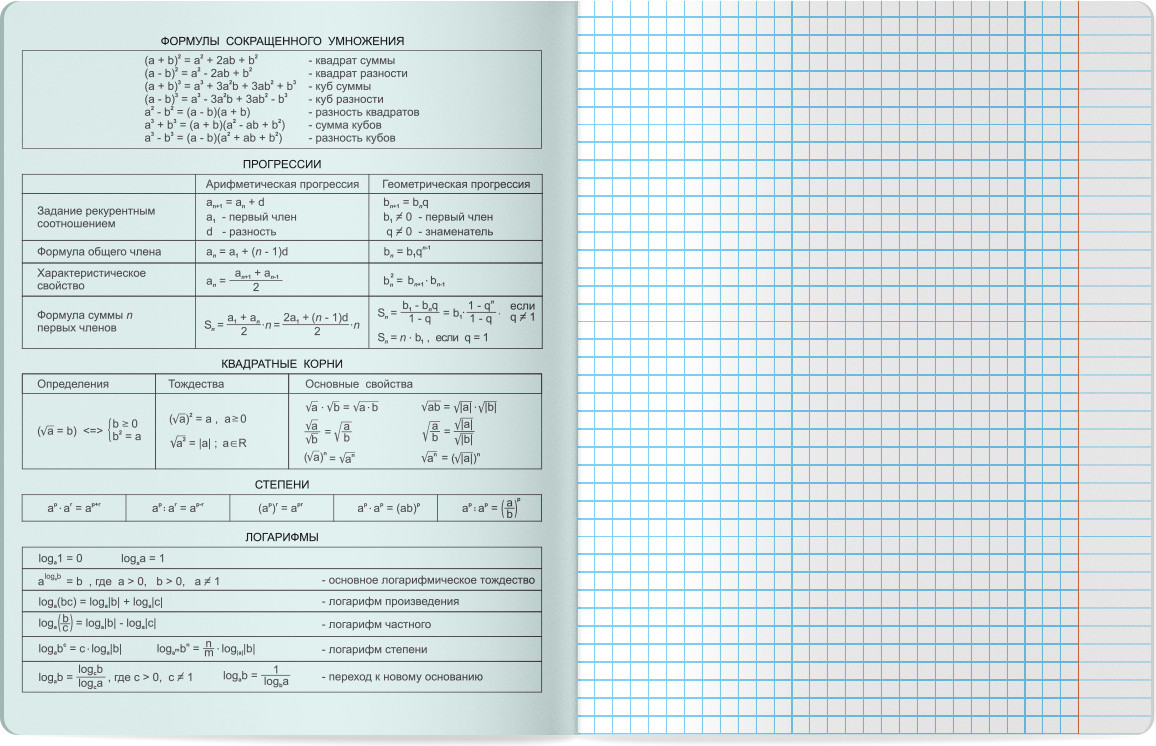 ФОРМУЛЫ СОКРАЩЕННОГО УМНОЖЕНИЯ
(a + b)² = a² + 2ab + b² - квадрат суммы
(a - b)² = a² - 2ab + b² - квадрат разности
(a + b)³ = a³ + 3a²b + 3ab² + b³ - куб суммы
(a - b)³ = a³ - 3a²b + 3ab² - b³ - куб разности
a² - b² = (a - b)(a + b) - разность квадратов
a³ + b³ = (a + b)(a² - ab + b²) - сумма кубов
a³ - b³ = (a - b)(a² + ab + b²) - разность кубов
ПРОГРЕССИИ
Арифметическая прогрессия Геометрическая прогрессия
Задание рекурентным соотношением
aₙ₊₁ = aₙ + d
a₁ - первый член
d - разность
bₙ₊₁ = bₙq
b₁ ≠ 0 - первый член
q ≠ 0 - знаменатель
Формула общего члена aₙ = a₁ + (n - 1)d bₙ = b₁qⁿ⁻¹
Характеристическое свойство aₙ = (aₙ₊₁ + aₙ₋₁)/2 bₙ² = bₙ₊₁ · bₙ₋₁
Формула суммы n первых членов
Sₙ = (a₁ + aₙ)/2 · n = (2a₁ + (n - 1)d)/2 · n
Sₙ = (b₁ - bₙq)/(1 - q) = b₁ · (1 - qⁿ)/(1 - q) · если q ≠ 1
Sₙ = n · b₁ , если q = 1
КВАДРАТНЫЕ КОРНИ
Определения Тождества Основные свойства
(√a = b) <=> { b ≥ 0
b² = a
(√a)² = a , a ≥ 0
√a² = |a| ; a ∈ R
√a · √b = √(a · b) √(ab) = √|a| · √|b|
√a/√b = √(a/b) √(a/b) = √|a|/√|b|
(√a)ⁿ = √aⁿ √aⁿ = (√|a|)ⁿ
СТЕПЕНИ
aᵖ · aʳ = aᵖ⁺ʳ aᵖ : aʳ = aᵖ⁻ʳ (aᵖ)ʳ = aᵖʳ aᵖ · aᵖ = (ab)ᵖ aᵖ : aᵖ = (a/b)ᵖ
ЛОГАРИФМЫ
logₐ1 = 0 logₐa = 1
a^(logₐb) = b , где a > 0, b > 0, a ≠ 1 - основное логарифмическое тождество
logₐ(bc) = logₐ|b| + logₐ|c| - логарифм произведения
logₐ(b/c) = logₐ|b| - logₐ|c| - логарифм частного
logₐbᶜ = c · logₐ|b| logₐᵐbⁿ = n/m · log|ₐ||b| - логарифм степени
logₐb = log꜀b/log꜀a , где c > 0, c ≠ 1 logₐb = 1/log_b a - переход к новому основанию